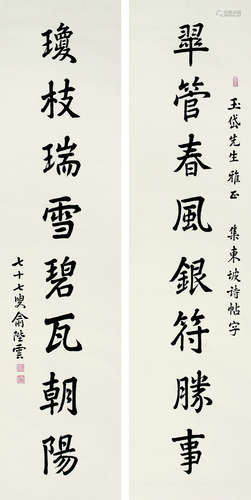 翠管春風銀符勝事
玉岱先生雅正 集東坡詩帖字
瓊枝瑞雪碧瓦朝陽
七十七叟俞陛雲